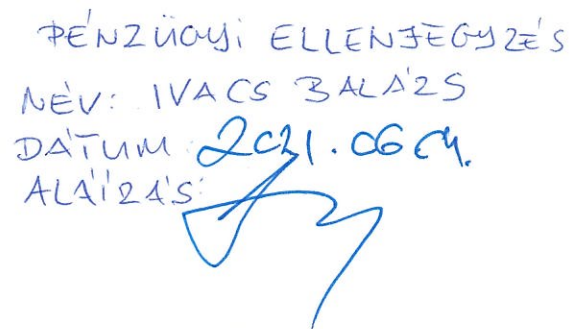 PÉNZÜGYI ELLENJEGYZÉS
NÉV: IVACS BALÁZS
DÁTUM: 2021.06.04.
ALÁÍRÁS: